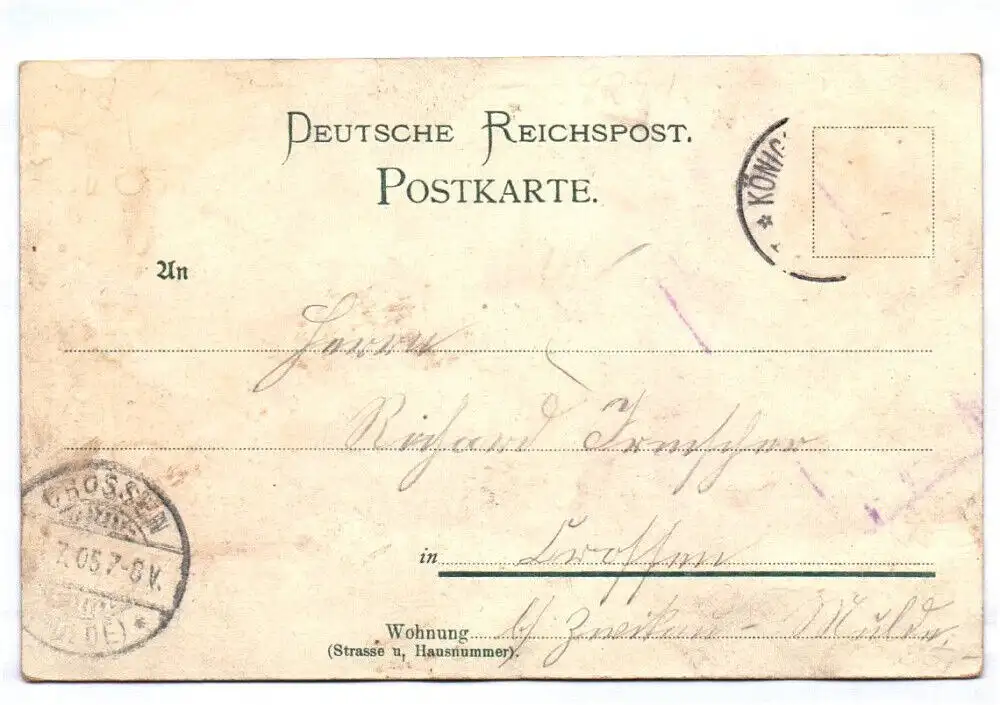 DEUTSCHE REICHSPOST.
POSTKARTE.
KÖNIG
*
An
Herrn
Richard Irmscher
in Crossen
Wohnung b/ Zwickau - Mulde.
(Strasse u. Hausnummer).
CROSSEN
7.05.7-8V.
(MULDE) *